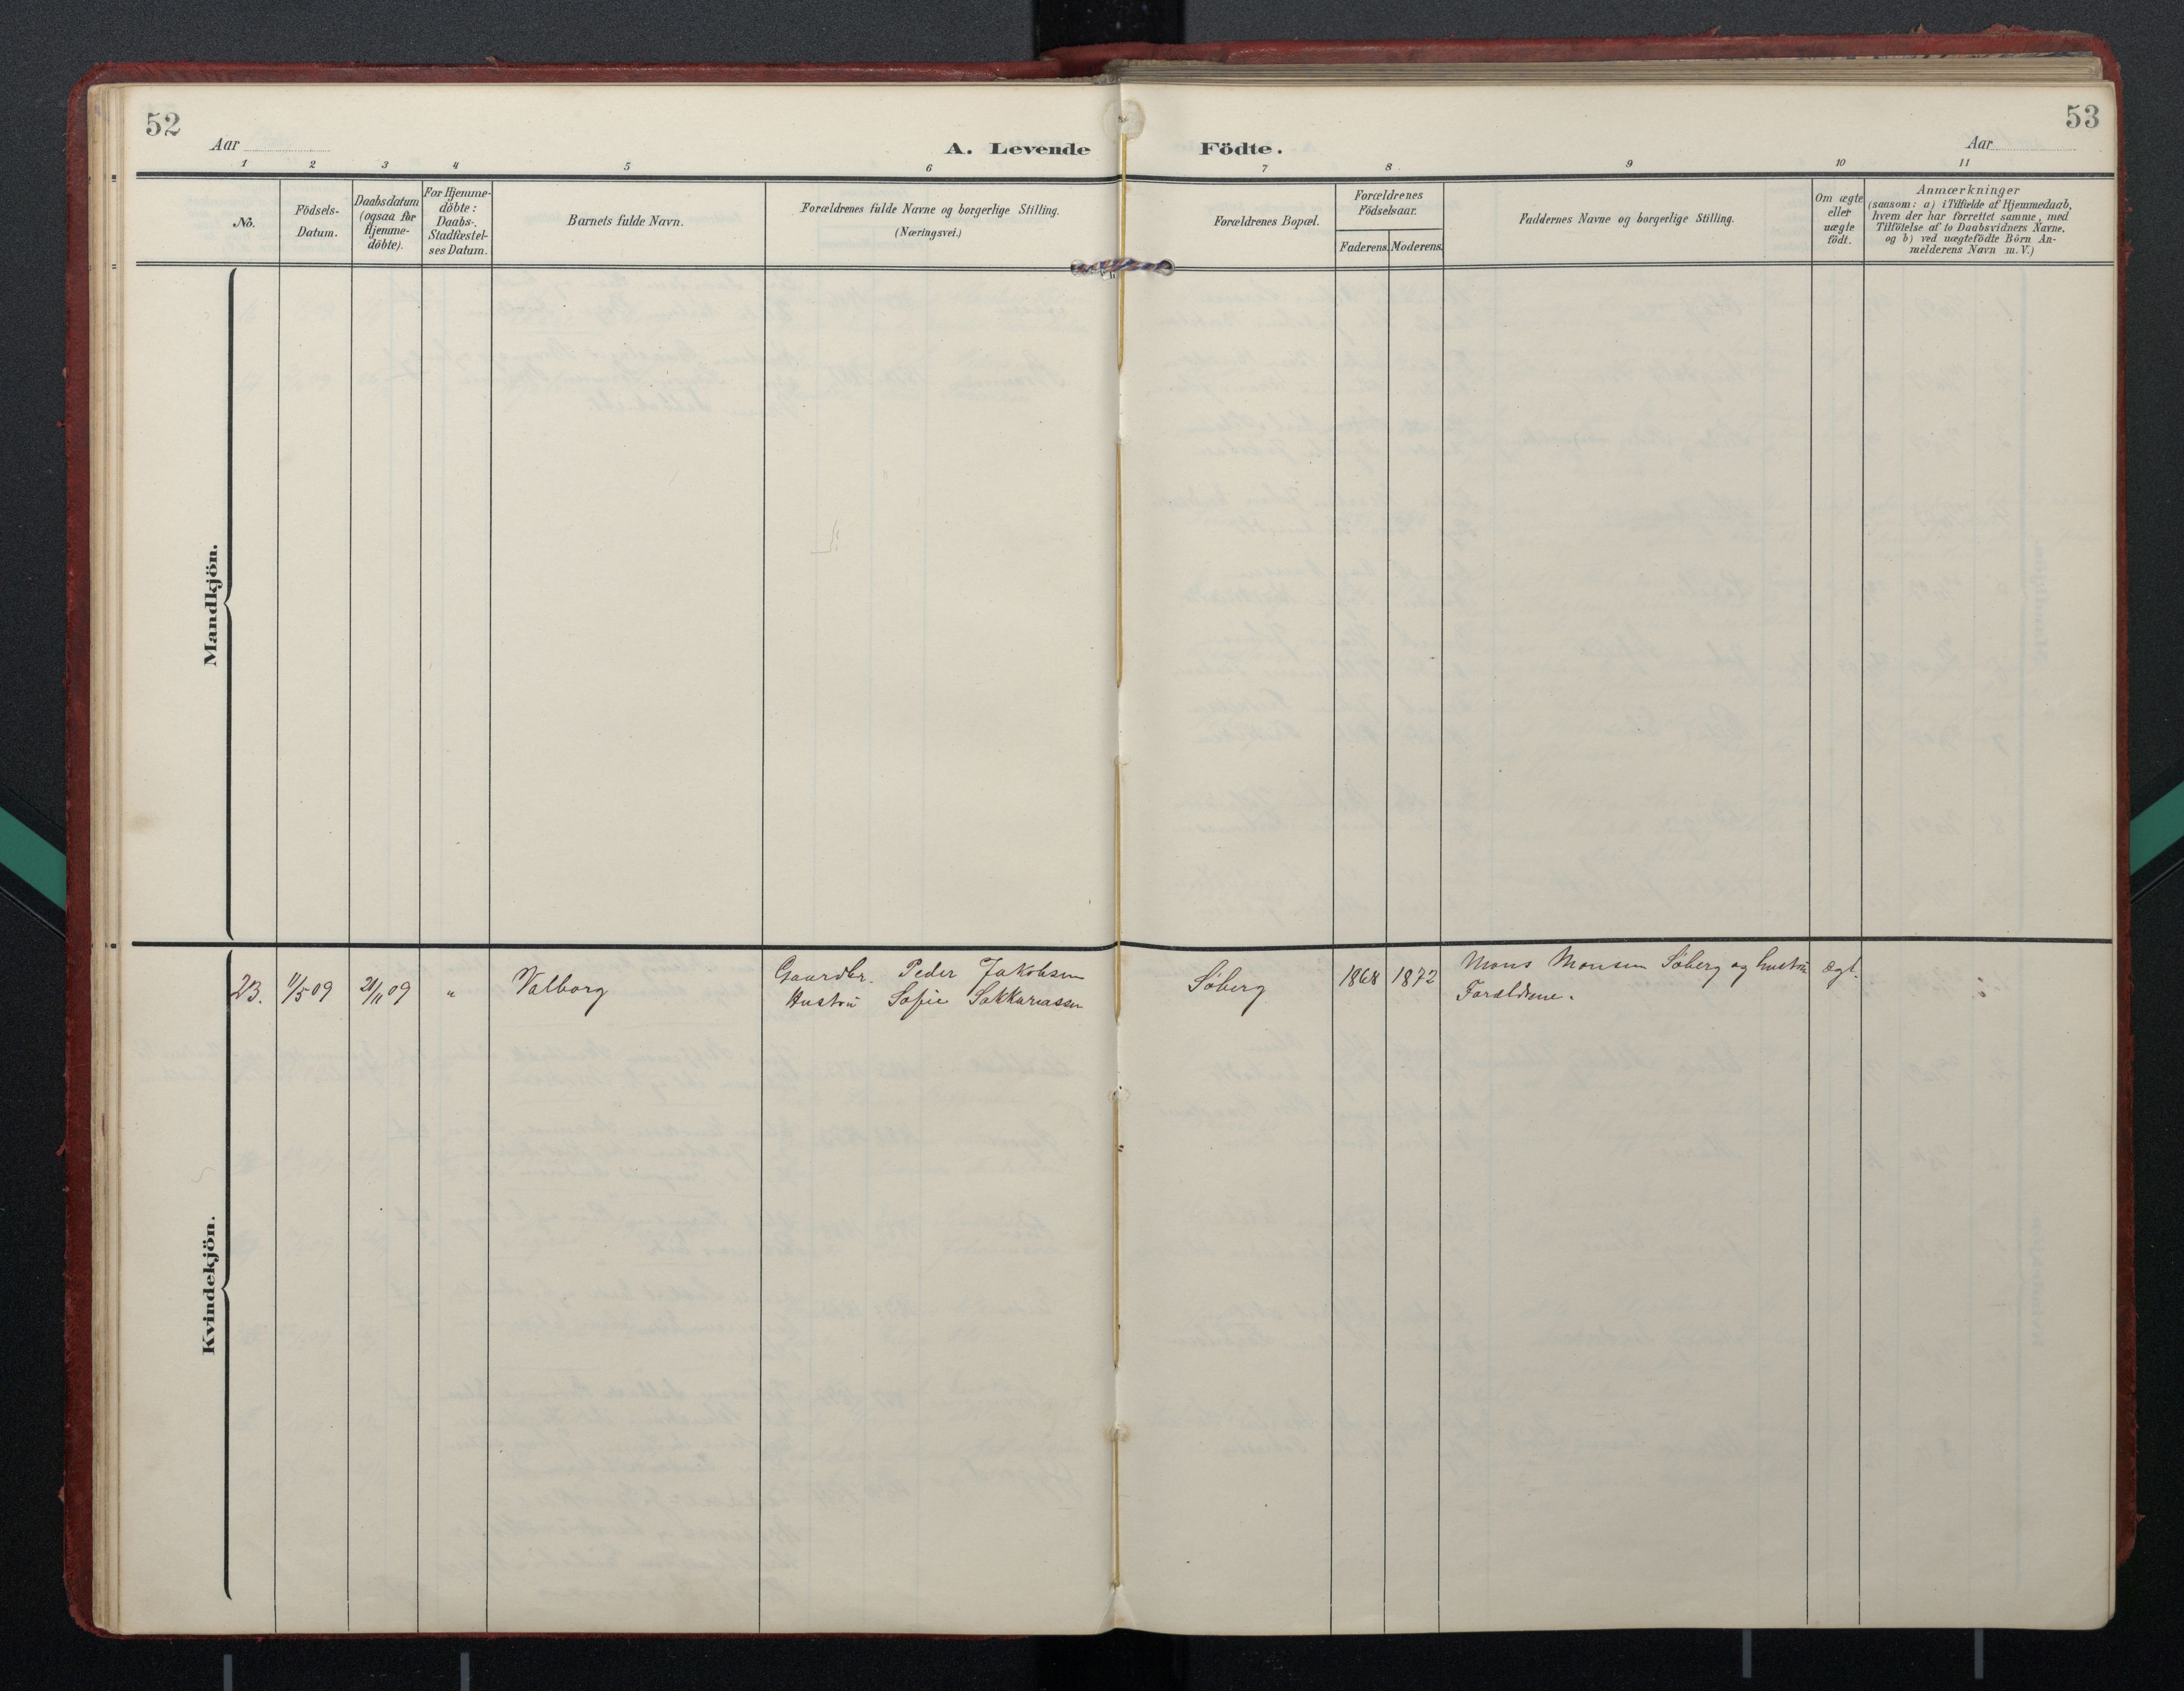 52
53
Aar
A. Levende Födte.
Aar
1 2 3 4 5 6 7 8 9 10 11
No.
Födsels-
Datum.
Daabsdatum
(ogsaa for
Hjemme-
döbte).
For Hjemme-
döbte:
Daabs-
Stadfæstel-
ses Datum.
Barnets fulde Navn.
Forældrenes fulde Navne og borgerlige Stilling.
(Næringsvei.)
Forældrenes Bopæl.
Forældrenes
Födselsaar.
Faderens. Moderens.
Faddernes Navne og borgerlige Stilling.
Om ægte
eller
uægte
födt.
Anmærkninger
(saasom: a) i Tilfælde af Hjemmedaab,
hvem der har forrettet samme, med
Tilföielse af to Daabsvidners Navne.
og b) ved uægtefödte Börn An-
melderens Navn m. V.)
Mandkjön.
Kvindekjön.
23. 11/5 09 21/11 09 " Valborg
Gaardbr. Peder Jakobsen
Hustru Sofie Sakkariassen
Søberg
1868 1872
Mons Monsen Søberg og hustru
Forældrene.
Ægt.